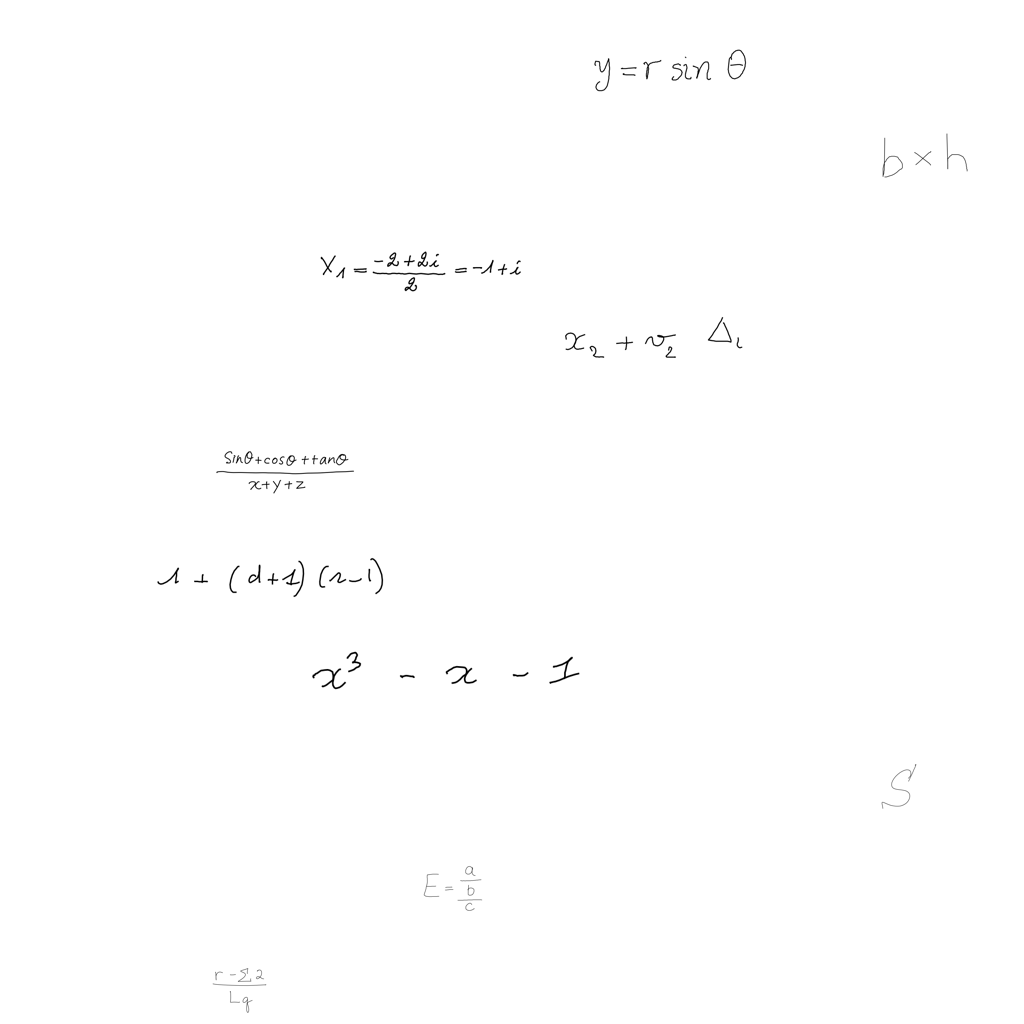 y = r sin θ
b × h
X₁ = (-2+2i)/2 = -1+i
x₂ + v₂ Δ₁
(sinθ+cosθ+tanθ)/(x+y+z)
1 + (d+1)(r-1)
x³ - x - 1
S
E = a/b/c
(r-Σ2)/Lq